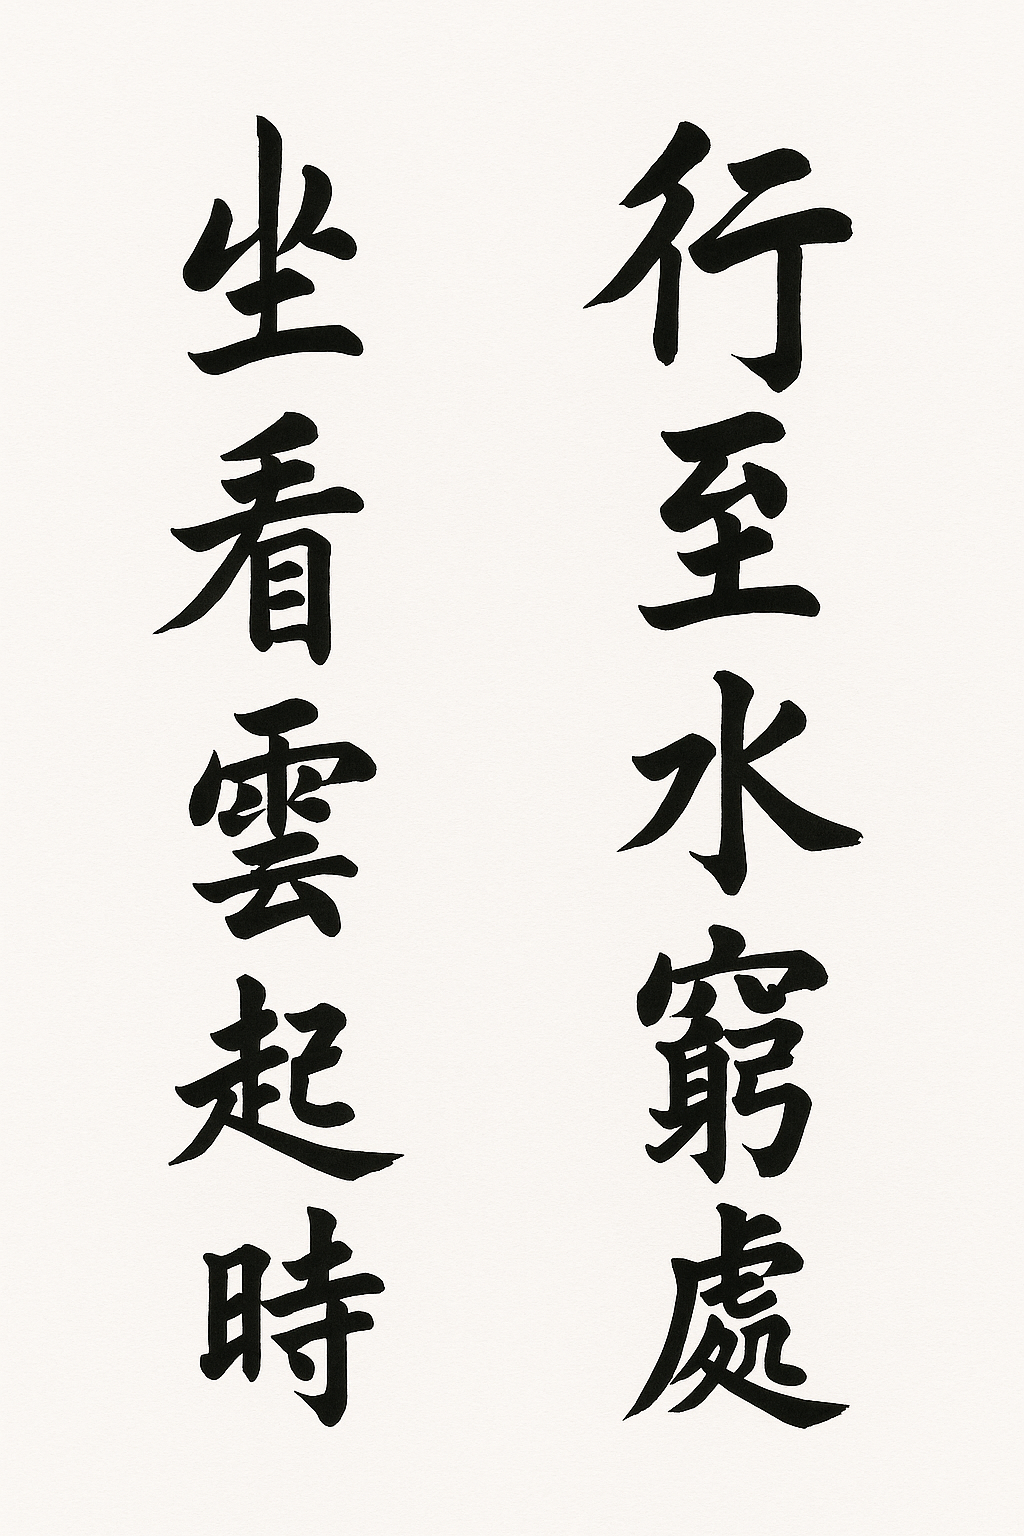 行至水窮處
坐看雲起時